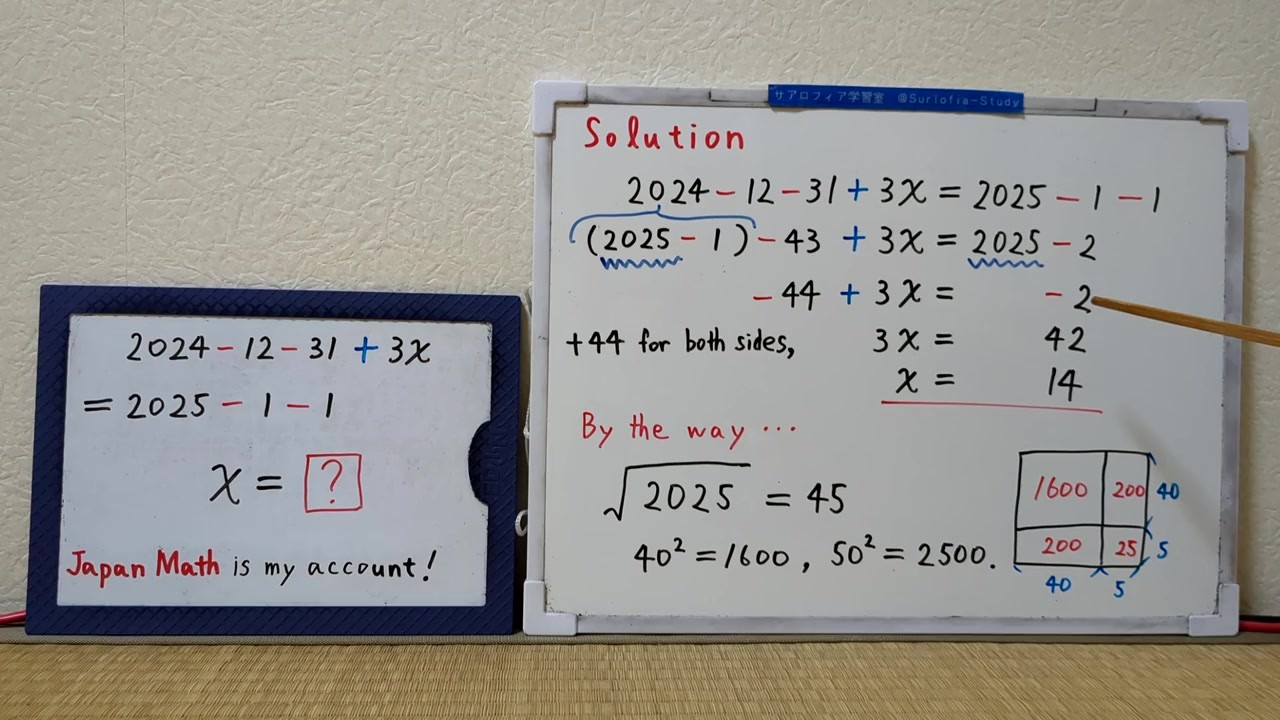 2024-12-31+3x
=2025-1-1
x=?
Japan Math is my account!
サアロフィア学習室 @Surlofia-Study
Solution
2024-12-31+3x=2025-1-1
(2025-1)-43+3x=2025-2
-44+3x= -2
+44 for both sides, 3x= 42
x= 14
By the way ...
√2025 = 45
40²=1600, 50²=2500.
1600 200 40
200 25 5
40 5